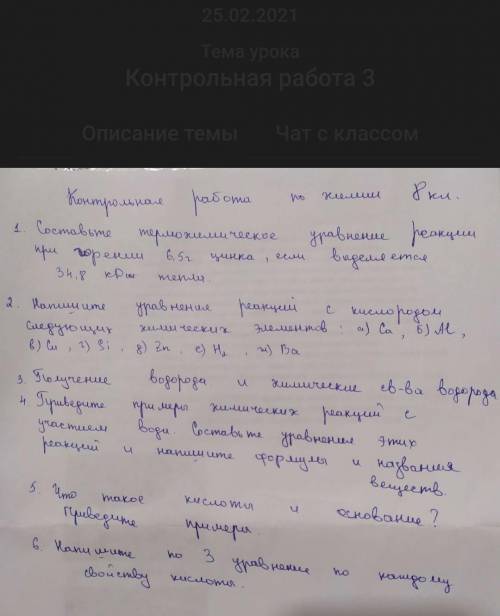 25.02.2021
Тема урока
Контрольная работа 3
Описание темы Чат с классом
Контрольная работа по химии 8 кл.
1. Составьте термохимическое уравнение реакции
при горении 6,5 г. цинка, если выделяется
34,8 кДж тепла.
2. Напишите уравнения реакций с кислородом
следующих химических элементов: а) Ca, б) Al,
в) Cu, г) Si, д) Zn, е) H₂, ж) Ba
3. Получение водорода и химические св-ва водорода
4. Приведите примеры химических реакций с
участием воды. Составьте уравнения этих
реакций и напишите формулы и названия
веществ.
5. Что такое кислоты и основание?
Приведите примеры.
6. Напишите по 3 уравнение по каждому
свойству кислоты.